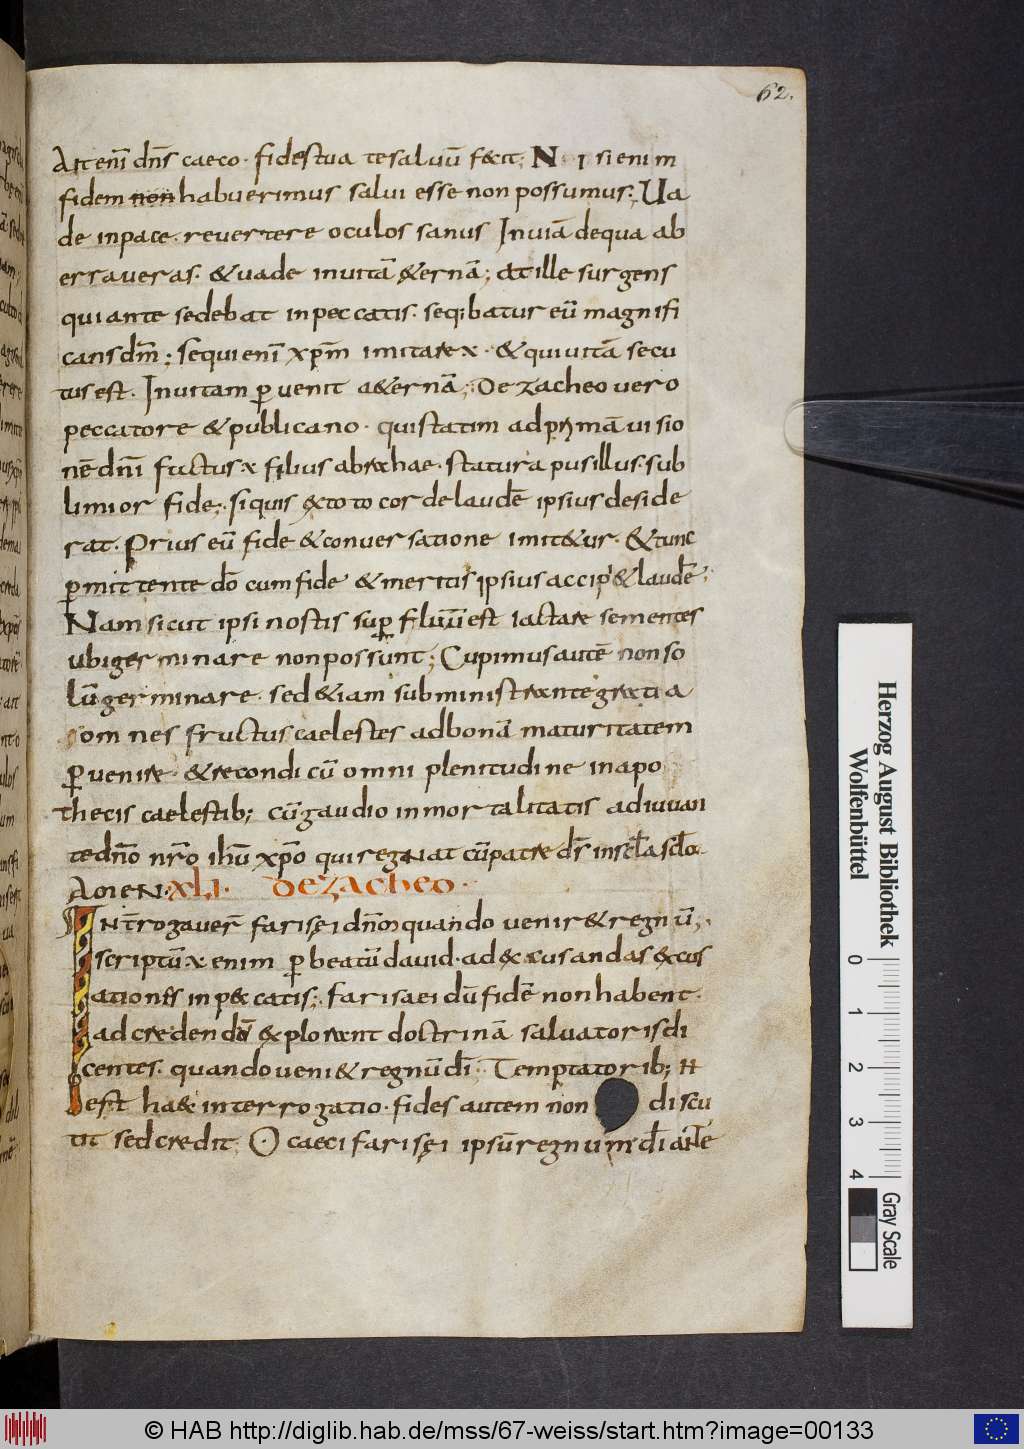 62.
Ait enī dn̄s caeco · fides tua te saluū fecit; N · i si enim
fidem non habuerimus salui esse non possumus; Ua
de in pace · revertere oculos sanus In uiā de qua ab
erraveras · & uade in uitā &ernā; at ille surgens
qui ante sedebat in peccatis · seq;batur eū magnifi
cans dm̄; sequi enī xpm̄ imitare x · & qui uitā secu
tus est · In uitam ꝑvenit a&ernā; De zacheo vero
peccatore & publicano · qui statim ad primā uisio
nē dnī fuctus x filius abrahae · statura pusillus · sub
limior fide; siquis ex toto corde laudē ipsius deside
rat · Prius eū fide & conversatione imit&ur · & tunc
ꝑmittente dō cum fide & meritis ipsius accip&laudē;
Nam sicut ipsi nostis suꝑ fluuiū est iactare sementes
ubi germinare non possunt; Cupimus autē non so
lū germinare · sed &iam subministrante gratia
omnes fructus caelestes ad bonā maturitatem
ꝑvenire · & recondi cū omni plenitudine in apo
thecis caelestib; cū gaudio inmortalitatis adiuuan
te dn̄o nr̄o ihū xpō qui regnat cū patre ds̄ in scl̄a scl̄o ·
Amen · XLI · De Zacheo ·
INTr̄rogaver̄ farisęi dn̄m quando venir& regnū;
scriptū x enim ꝑ beatū david · ad excusandas excus
ationes in peccatis; farisaei dū fidē non habent ·
ad credendū explorant doctrinā salvatoris di
centes · quando veni& regnū dī · Temptatorib; n
est haec interrogatio · fides autem non discu
tit sed credit · O caeci farisęi ipsū regnum dī ante
Herzog August Bibliothek
Wolfenbüttel
0 1 2 3 4
Gray Scale
© HAB http://diglib.hab.de/mss/67-weiss/start.htm?image=00133